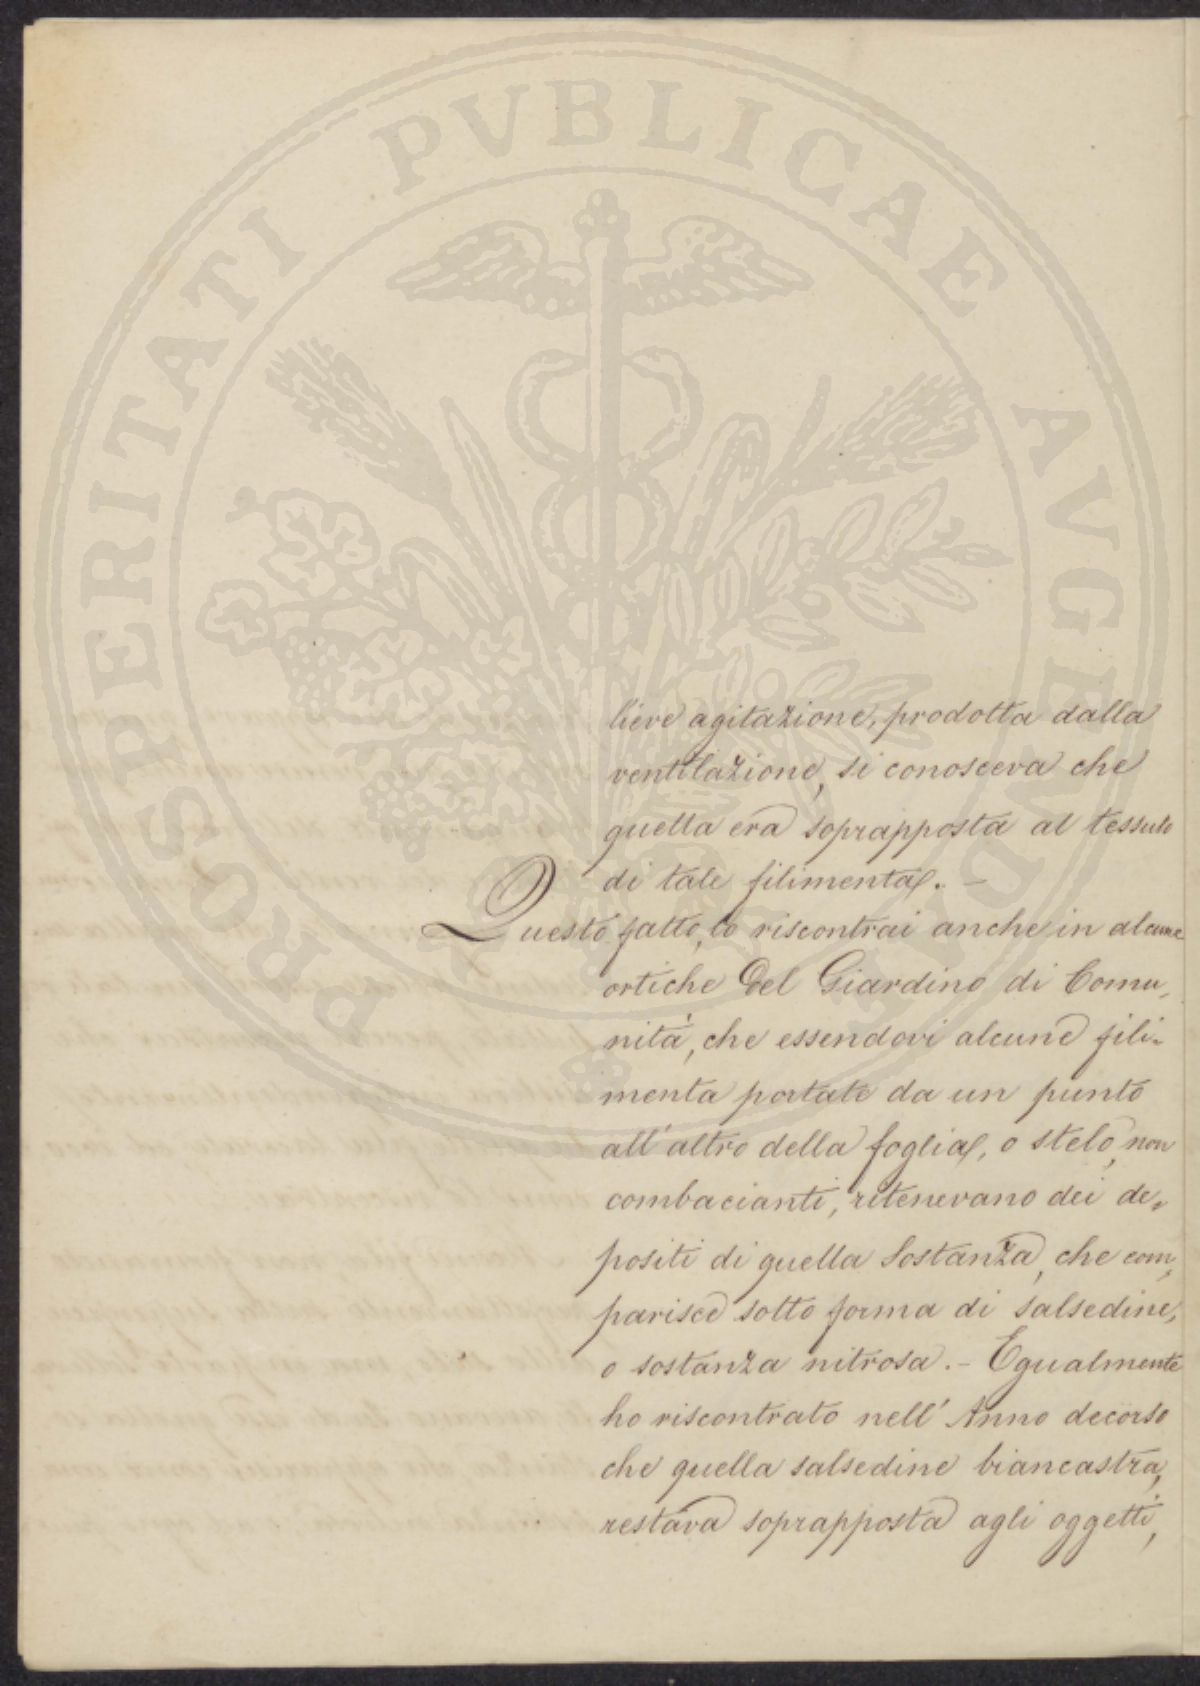 PROSPERITATI PVBLICAE AVGENDAE
lieve agitazione, prodotta dalla
ventilazione, si conosceva che
quella era soprapposta al tessuto
di tale filimenta. –
Questo fatto, lo riscontrai anche in alcune
ortiche del Giardino di Comu„
nità, che essendovi alcune fili„
menta portate da un punto
all'altro della foglia, o stelo, non
combacianti, ritenevano dei de„
positi di quella Sostanza, che com„
parisce sotto forma di salsedine,
o sostanza nitrosa. – Egualmente
ho riscontrato nell'Anno decorso
che quella salsedine biancastra,
restava soprapposta agli oggetti,